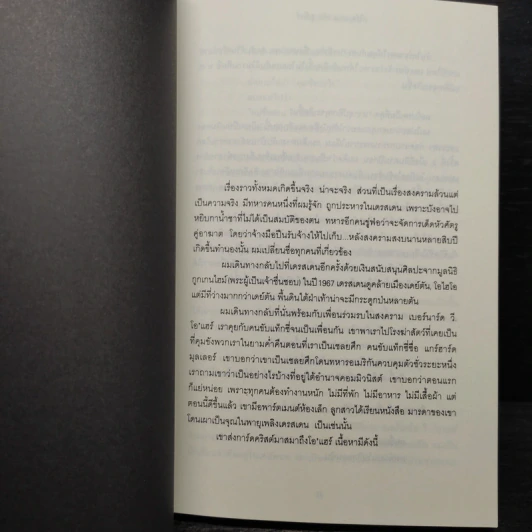 เรื่องราวทั้งหมดเกิดขึ้นจริง น่าจะจริง ส่วนที่เป็นเรื่องสงครามล้วนแต่
เป็นความจริง มีทหารคนหนึ่งที่ผมรู้จัก ถูกประหารในเดรสเดน เพราะบังอาจไป
หยิบกาน้ำชาที่ไม่ได้เป็นสมบัติของตน ทหารอีกคนขู่ฟ่อว่าจะจัดการเด็ดหัวศัตรู
คู่อาฆาต โดยว่าจ้างมือปืนรับจ้างให้ไปเก็บ...หลังสงครามสงบนานหลายสิบปี
เกิดขึ้นทำนองนั้น ผมเปลี่ยนชื่อทุกคนที่เกี่ยวข้อง
ผมเดินทางกลับไปที่เดรสเดนอีกครั้งด้วยเงินสนับสนุนศิลปะจากมูลนิธิ
กูกเกนไฮม์ (พระผู้เป็นเจ้าชื่นชอบ) ในปี 1967 เดรสเดนดูคล้ายเมืองเดย์ตัน, โอไฮโอ
แต่มีที่ว่างมากกว่าเดย์ตัน พื้นดินใต้ฝ่าเท้าน่าจะมีกระดูกป่นหลายตัน
ผมเดินทางกลับที่นั่นพร้อมกับเพื่อนร่วมรบในสงคราม เบอร์นาร์ด วี.
โอ'แฮร์ เราคุยกับคนขับแท็กซี่จนเป็นเพื่อนกัน เขาพาเราไปโรงฆ่าสัตว์ที่เคยเป็น
ที่คุมขังพวกเราในยามค่ำคืนตอนที่เราเป็นเชลยศึก คนขับแท็กซี่ชื่อ แกร์ฮาร์ด
มุลเลอร์ เขาบอกว่าเขาเป็นเชลยศึกโดนทหารอเมริกันควบคุมตัวชั่วระยะหนึ่ง
เราถามเขาว่าเป็นอย่างไรบ้างที่อยู่ใต้อำนาจคอมมิวนิสต์ เขาบอกว่าตอนแรก
ก็แย่หน่อย เพราะทุกคนต้องทำงานหนัก ไม่มีที่พัก ไม่มีอาหาร ไม่มีเสื้อผ้า แต่
ตอนนี้ดีขึ้นแล้ว เขามีอพาร์ตเมนต์ห้องเล็ก ลูกสาวได้เรียนหนังสือ มารดาของเขา
โดนเผาเป็นจุณในพายุเพลิงเดรสเดน เป็นเช่นนั้น
เขาส่งการ์ดคริสต์มาสมาถึงโอ'แฮร์ เนื้อหามีดังนี้